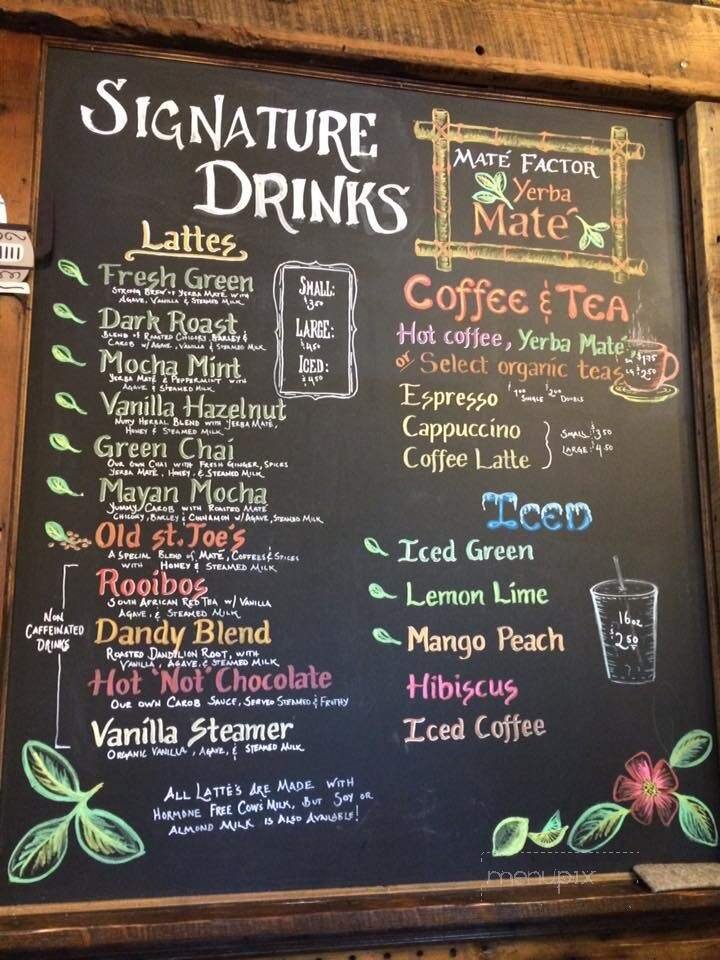 SIGNATURE
DRINKS
Lattes
Fresh Green
STRONG BREW OF YERBA MATÉ WITH
AGAVE, VANILLA & STEAMED MILK
Dark Roast
BLEND OF ROASTED CHICORY, BARLEY &
CAROB W/ AGAVE, VANILLA & STEAMED MILK
Mocha Mint
YERBA MATÉ & PEPPERMINT WITH
AGAVE & STEAMED MILK
Vanilla Hazelnut
NUTTY HERBAL BLEND WITH YERBA MATÉ,
HONEY & STEAMED MILK
Green Chai
OUR OWN CHAI WITH FRESH GINGER, SPICES
YERBA MATÉ, HONEY, & STEAMED MILK
Mayan Mocha
YUMMY CAROB WITH ROASTED MATÉ
CHICORY, BARLEY & CINNAMON W/ AGAVE, STEAMED MILK
Old st. Joe's
A SPECIAL BLEND OF MATÉ, COFFEES & SPICES
WITH HONEY & STEAMED MILK
NON
CAFFEINATED
DRINKS
Rooibos
SOUTH AFRICAN RED TEA W/ VANILLA
AGAVE, & STEAMED MILK
Dandy Blend
ROASTED DANDYLION ROOT, WITH
VANILLA, AGAVE, & STEAMED MILK
Hot 'Not' Chocolate
OUR OWN CAROB SAUCE, SERVED STEAMED & FROTHY
Vanilla Steamer
ORGANIC VANILLA, AGAVE, & STEAMED MILK
ALL LATTÉ'S ARE MADE WITH
HORMONE FREE COW'S MILK, BUT SOY OR
ALMOND MILK IS ALSO AVAILABLE!
SMALL:
$3.50
LARGE:
$4.50
ICED:
$4.50
MATÉ FACTOR
Yerba
Maté
COFFEE & TEA
Hot coffee, Yerba Maté
or Select organic teas
SM $1.75
LG $2.50
Espresso $1.00 SINGLE $2.00 DOUBLE
Cappuccino SMALL: $3.50
Coffee Latte LARGE: $4.50
ICED
Iced Green
Lemon Lime
Mango Peach
Hibiscus
Iced Coffee
16oz
$2.50
menupix